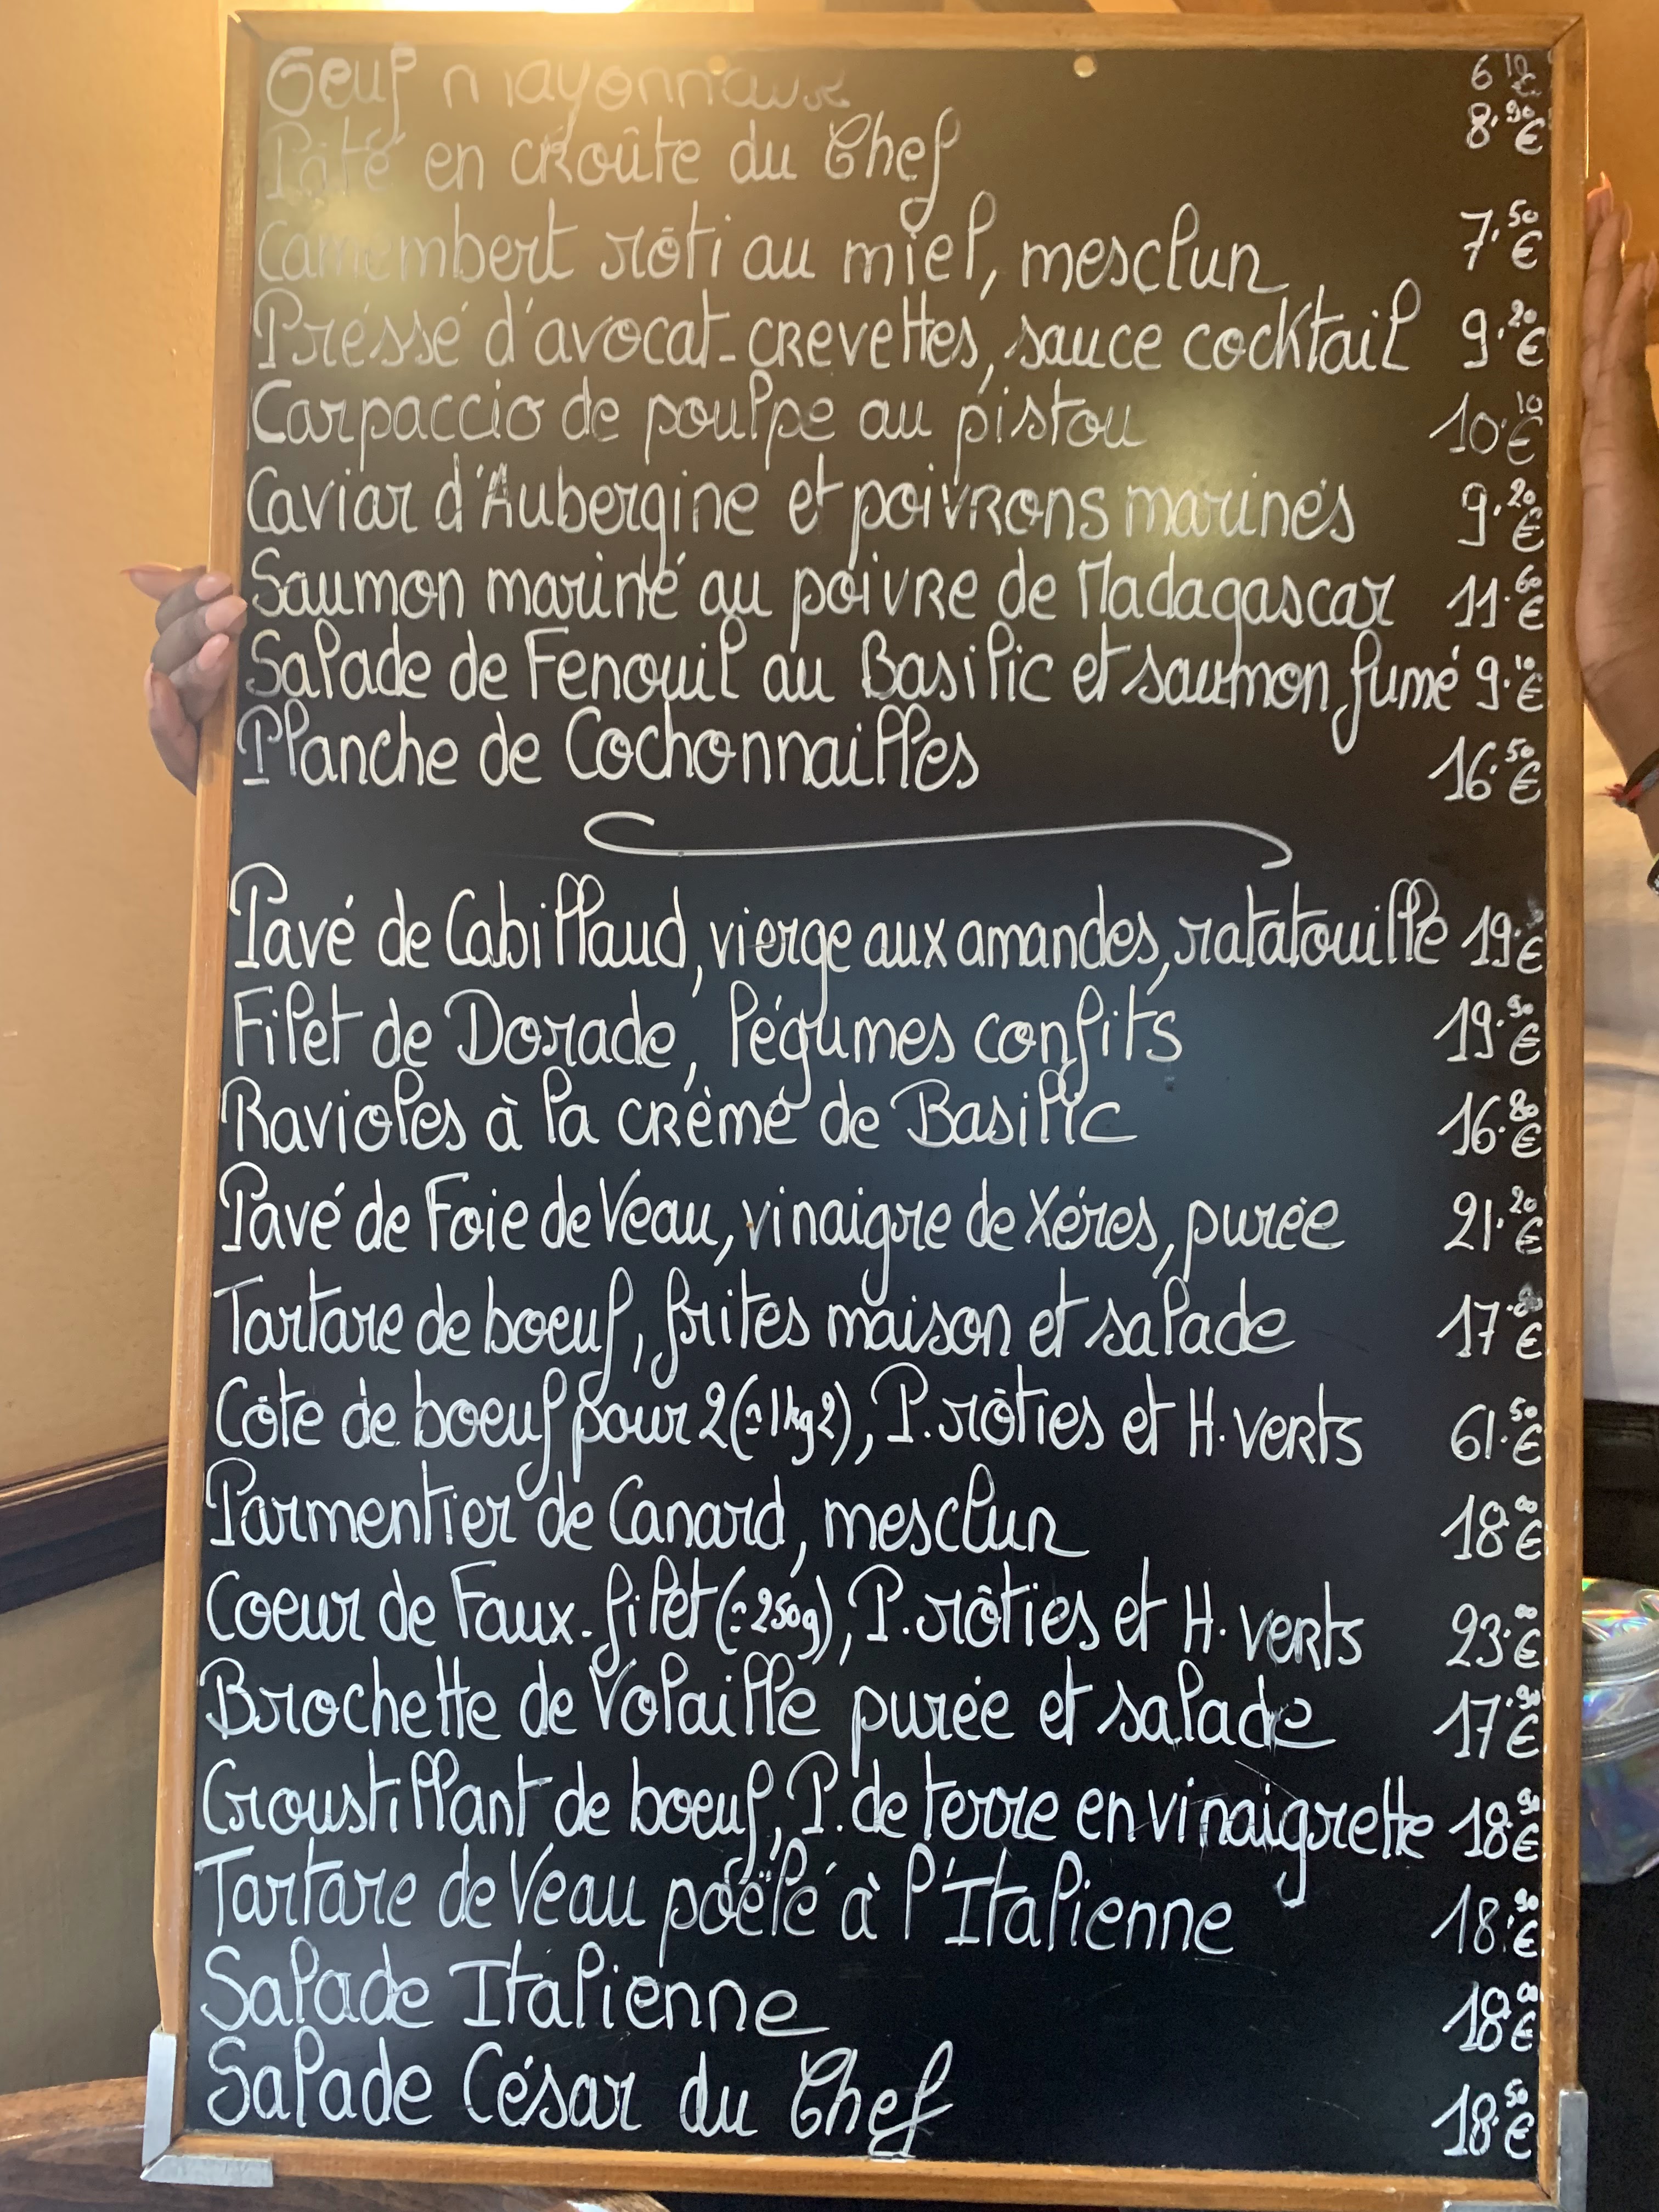 Oeuf mayonnaise 6.10€
Pâté en croûte du Chef 8.90€
Camembert rôti au miel, mesclun 7.50€
Préssé d'avocat-crevettes, sauce cocktail 9.20€
Carpaccio de poulpe au pistou 10.10€
Caviar d'Aubergine et poivrons marinés 9.20€
Saumon mariné au poivre de Madagascar 11.60€
Salade de Fenouil au Basilic et saumon fumé 9.10€
Planche de Cochonnailles 16.50€
Pavé de Cabillaud, vierge aux amandes, ratatouille 19.€
Filet de Dorade, légumes confits 19.90€
Ravioles à la crème de Basilic 16.80€
Pavé de Foie de Veau, vinaigre de Xérès, purée 21.20€
Tartare de boeuf, frites maison et salade 17.€
Côte de boeuf pour 2 (≃1kg2), P. rôties et H. verts 61.50€
Parmentier de Canard, mesclun 18.00€
Coeur de Faux-filet (≃250g), P. rôties et H. verts 23.00€
Brochette de Volaille purée et salade 17.90€
Croustillant de boeuf, P. de terre en vinaigrette 18.90€
Tartare de Veau poëlé à l'Italienne 18.90€
Salade Italienne 18.00€
Salade César du Chef 18.50€